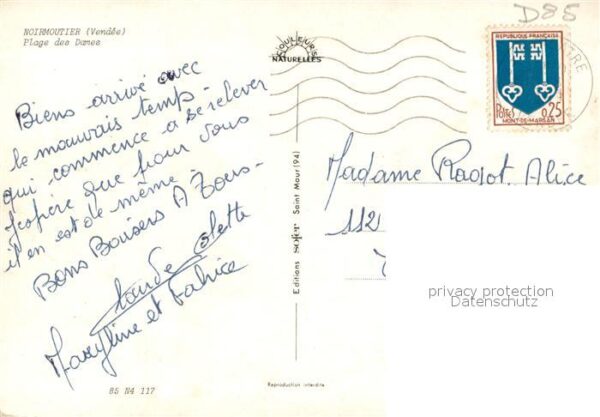 NOIRMOUTIER (Vendée)
Plage des Dames
Biens arrivé avec
le mauvais temps -
qui commence a se relever
J'espère que pour vous
il en est de même -
Bons Baisers A Tous -
Claude Colette
Maryline et Fabrice
85 N4 117
COULEURS
NATURELLES
Editions sofer Saint Maur (94)
Reproduction interdite
D85
REPUBLIQUE FRANÇAISE
Postes 0,25
MONT-DE-MARSAN
Madame Ragot. Alice
112
privacy protection
Datenschutz